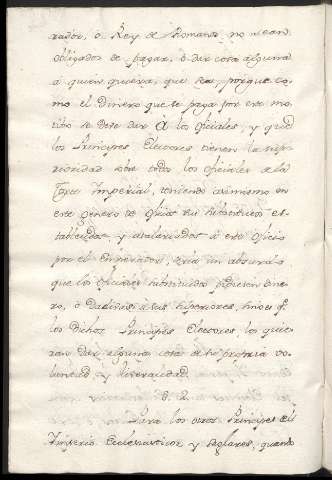 rador, ó Rey de Romanos no sean
obligados de pagar, ó dar cosa alguna
á quien quiera, que sea, porque co-
mo el Dinero que se paga por este mo-
tibo se deve dar á los oficiales, y que
los Principes Electores tienen la supe-
rioridad sobre todos los oficiales de la
Corte Imperial, teniendo asimismo en
este genero de oficios sus substitutos es-
tablecidos, y asalariados á este oficio
por el Emperador, seria un absurdo
que los oficiales substituidos pidiesen dine-
ro, ó Dadivas á sus superiores, sino es q.
los dichos Principes Electores les quie-
ran dar alguna cosa de su propria vo-
luntad, y liveralidad.
§. 2.
Para los otros Principes del
Imperio Eclesiasticos y seglares, quando